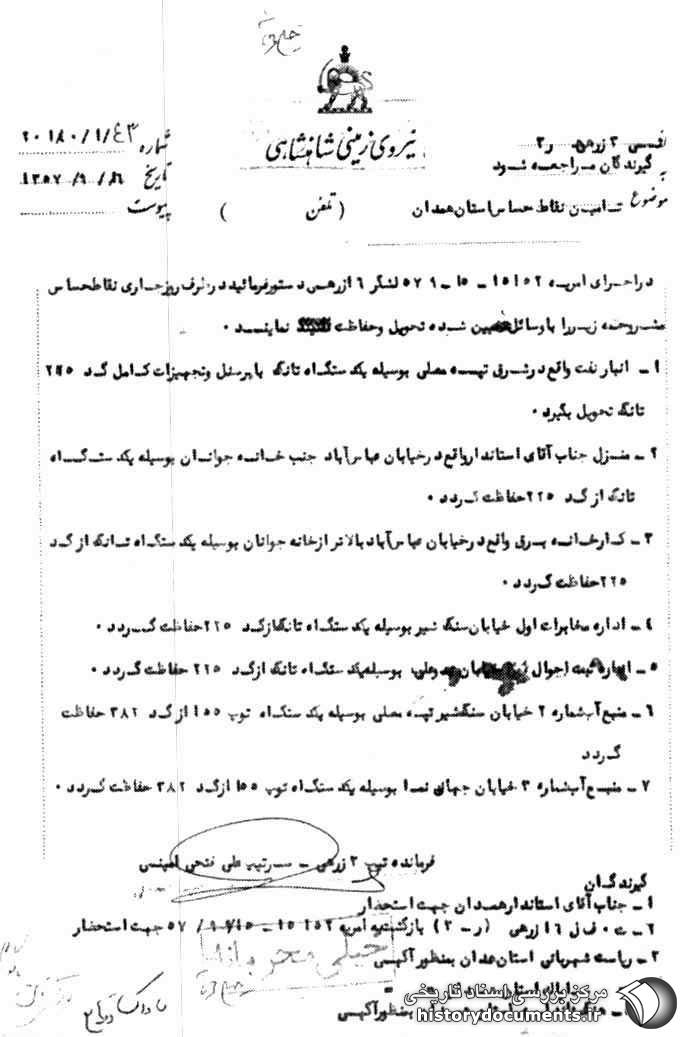 نیروی زمینی شاهنشاهی
شماره ۲۰۱۸۰/۱/۶۳
تاریخ
۱۳۵۷
پیوست
گیرندگان مراجعه شود
موضوع تامین نقاط حساس استان همدان (تلفن )
در اجرای امریه لشگر ۱۶ زرهی دستور فرمائید در ظرف روز جاری نقاط حساس
مشروحه زیر را با وسائل تعیین شده تحویل و حفاظت نمایند ۰
۱ـ انبار نفت واقع در شرق تپه مصلی بوسیله یکدستگاه تانک با پرسنل و تجهیزات کامل گد ۲۲۵
تانک تحویل بگیرد ۰
۲ ـ منزل جناب آقای استاندار واقع در خیابان عباس آباد جنب خانه جوانان بوسیله یکدستگاه
تانک از گد ۲۲۵ حفاظت گردد ۰
۳ ـ کارخانه برق واقع در خیابان عباس آباد بالاتر از خانه جوانان بوسیله یکدستگاه تانک از گد
۲۲۵ حفاظت گردد ۰
۴ ـ اداره مخابرات اول خیابان سنگ شیر بوسیله یکدستگاه تانک از گد ۲۲۵ حفاظت گردد ۰
۵ ـ اداره ثبت احوال بوسیله یکدستگاه تانک از گد ۲۲۵ حفاظت گردد ۰
۶ ـ منبع آب شماره ۲ خیابان سنگشیر تپه مصلی بوسیله یکدستگاه توپ ۱۵۵ از گد ۳۸۲ حفاظت
گردد
۷ ـ منبع آب شماره ۳ خیابان جهان نما بوسیله یکدستگاه توپ ۱۵۵ از گد ۳۸۲ حفاظت گردد ۰
فرمانده تیپ ۳ زرهی ـ سرتیپ علی فتحی امینی
گیرندگان
۱ ـ جناب آقای استاندار همدان جهت استحضار
۲ ـ ل ۱۶ زرهی (ر-۳) بازگشت به امریه جهت استحضار
خیلی محرمانه
۳ ـ ریاست شهربانی استان همدان بمنظور آگهی
بمنظور آگهی
مرکز بررسی اسناد تاریخی
historydocuments.ir